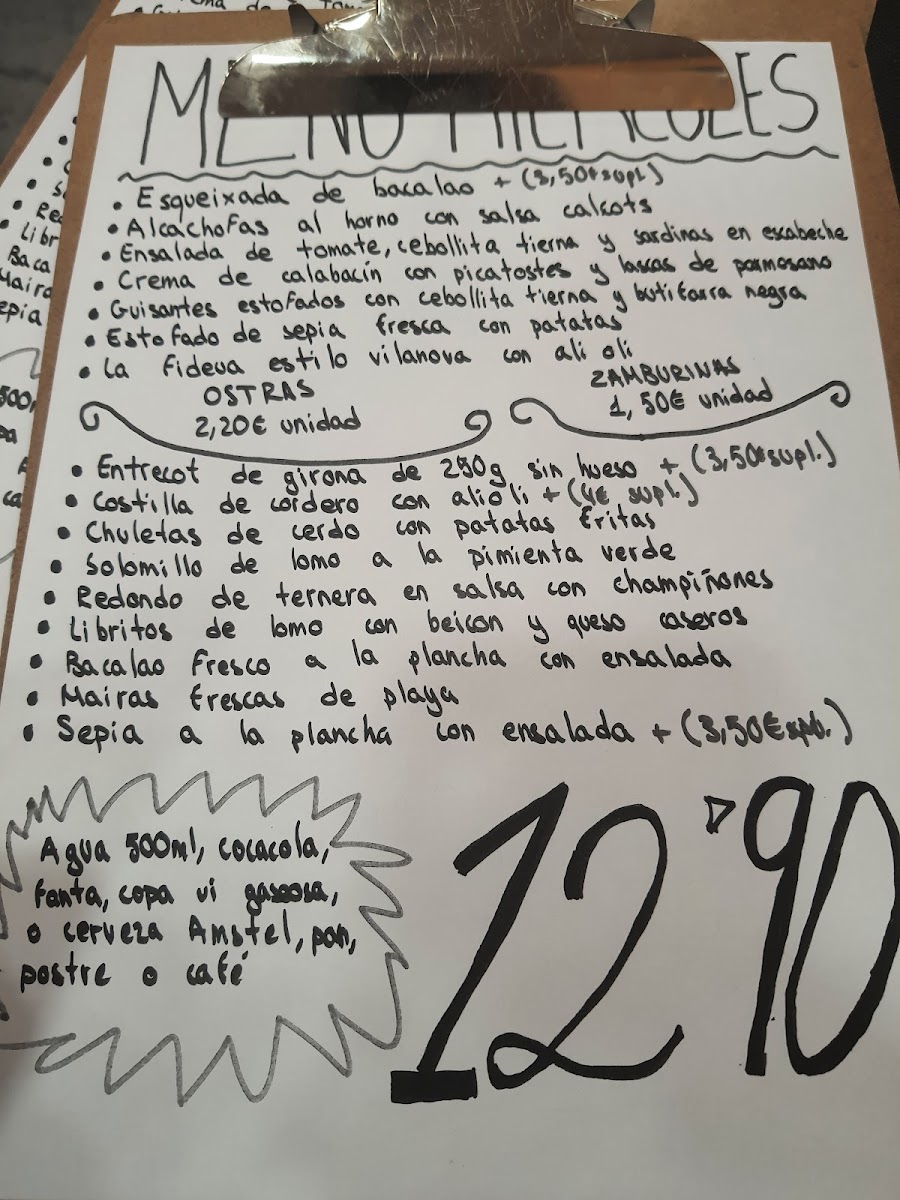 MENÚ MIÉRCOLES
• Esqueixada de bacalao + (3,50€ supl.)
• Alcachofas al horno con salsa calcots
• Ensalada de tomate, cebollita tierna y sardinas en escabeche
• Crema de calabacín con picatostes y lascas de parmesano
• Guisantes estofados con cebollita tierna y butifarra negra
• Estofado de sepia fresca con patatas
• La Fideua estilo vilanova con ali oli
OSTRAS
2,20€ unidad
ZAMBURINAS
1,50€ unidad
• Entrecot de girona de 250g sin hueso + (3,50€ supl.)
• Costilla de cordero con alioli + (4€ supl.)
• Chuletas de cerdo con patatas fritas
• Solomillo de lomo a la pimienta verde
• Redondo de ternera en salsa con champiñones
• Libritos de lomo con beicon y queso caseros
• Bacalao fresco a la plancha con ensalada
• Mairas frescas de playa
• Sepia a la plancha con ensalada + (3,50€ spl.)
Agua 500ml, cocacola,
fanta, copa vi gaseosa,
o cerveza Amstel, pan,
postre o café
12'90